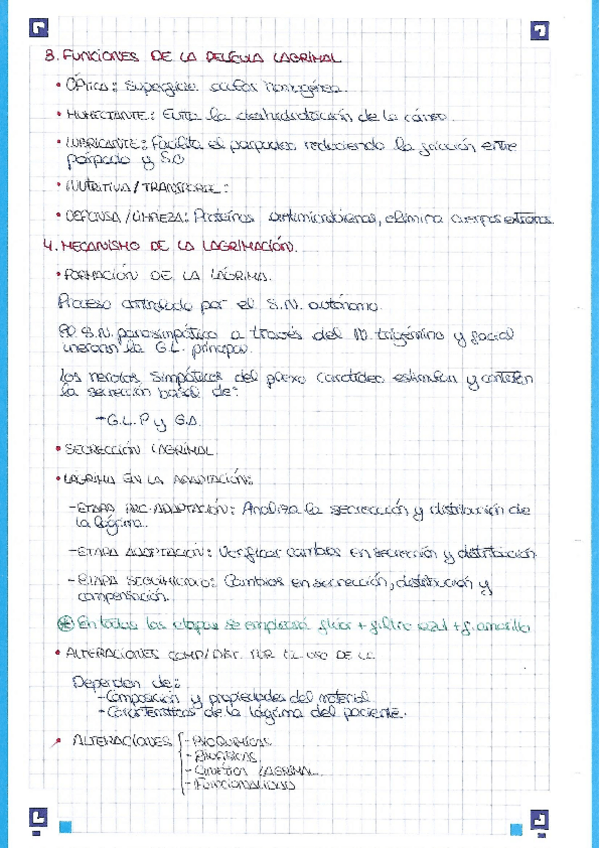 3. FUNCIONES DE LA PELÍCULA LAGRIMAL
• ÓPtica: Superficie suave homogénea.
• HUMECTANTE: Evita la deshidratación de la córnea.
• LUBRICANTE: Facilita el parpadeo reduciendo la fricción entre
párpado y S.O
• NUTRITIVA / TRANSPORTE:
• DEFENSA / LIMPIEZA: Proteínas antimicrobianas, elimina cuerpos extraños.
4. MECANISMO DE LA LAGRIMACIÓN.
• FORMACIÓN DE LA LÁGRIMA.
Proceso controlado por el S.N. autónomo.
El S.N. parasimpático a través del N. trigémino y facial
inervan la G.L. principal.
Los nervios simpáticos del plexo carotídeo estimulan y controlan
la secreción basal de:
- G.L.P y G.A.
• SECRECCIÓN LAGRIMAL
• LÁGRIMA EN LA ADAPTACIÓN:
- ETAPA PRE-ADAPTACIÓN: Analiza la secreción y distribución de
la lágrima.
- ETAPA ADAPTACIÓN: Verificar cambios en secreción y distribución
- ETAPA SEGUIMIENTO: Cambios en secreción, distribución y
compensación.
En todas las etapas se empleará flúor + f. azul + f. amarillo
• ALTERACIONES COMP/DIST. POR EL USO DE LC
Dependen de:
- Composición y propiedades del material
- Características de la lágrima del paciente.
ALTERACIONES - BIOQUÍMICAS
- BIOFÍSICAS
- CINÉTICA LAGRIMAL
- FUNCIONALIDAD